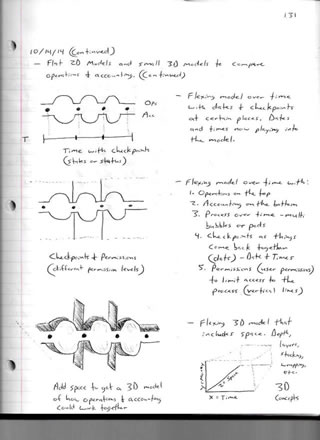 131
10/14/14 (Continued)
- Flat 2D Models and small 3D models to compare
operations & accounting. (Continued)
Ops
Acc
T
Time with checkpoints
(states or status)
- Flexing model over time
with dates & checkpoints
at certain places. Dates
and times now playing into
the model.
Checkpoints & Permissions
(different permission levels)
- Flexing model over time with:
1. Operations on the top
2. Accounting on the bottom
3. Process over time - multi
bubbles or pods
4. Checkpoints as things
come back together
(dots) - Date & Times
5. Permissions (user permissions)
to limit access to the
process (vertical lines)
Add space to get a 3D model
of how operations & accounting
could work together
- Flexing 3D model that
includes space. Depth,
layers,
stacking,
wrapping,
etc.
Z = Space
X = Time
3D
Concepts